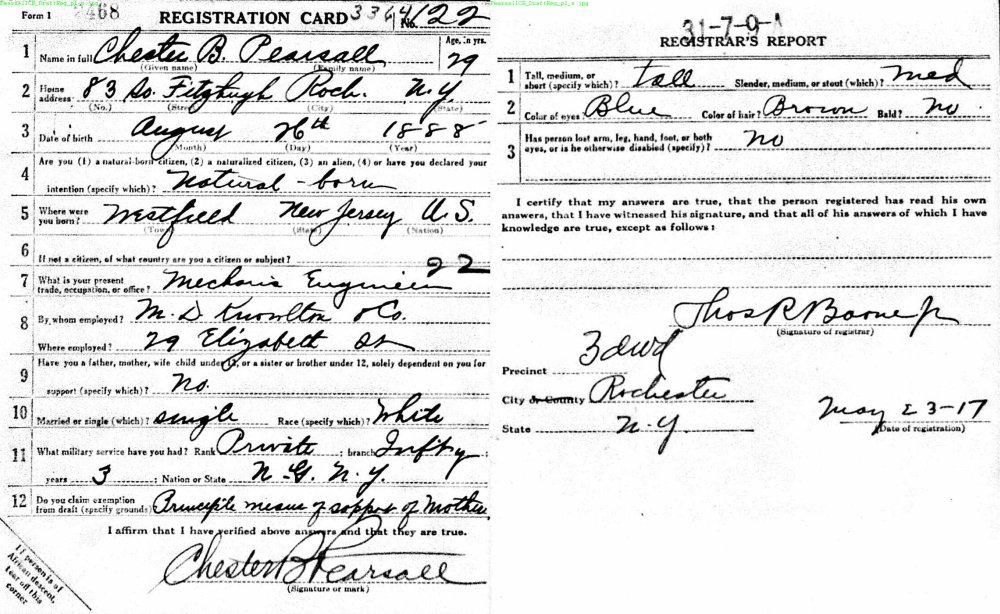 Form 1 2468 REGISTRATION CARD 3364 No. 122
1 Name in full Chester B. Pearsall Age, in yrs. 29
(Given name) (Family name)
2 Home address 83 So. Fitzhugh Roch. N.Y
(No.) (Street) (City) (State)
3 Date of birth August 26th 1888
(Month) (Day) (Year)
4 Are you (1) a natural-born citizen, (2) a naturalized citizen, (3) an alien, (4) or have you declared your
intention (specify which)? Natural-born
5 Where were you born? Westfield New Jersey U.S.
(Town) (State) (Nation)
6 If not a citizen, of what country are you a citizen or subject?
22
7 What is your present trade, occupation, or office? Mechanic Engineer
8 By whom employed? M. D. Knowlton & Co.
Where employed? 29 Elizabeth St
9 Have you a father, mother, wife child under 12, or a sister or brother under 12, solely dependent on you for
support (specify which)? No.
10 Married or single (which)? single Race (specify which)? White
11 What military service have you had? Rank Private ; branch Inftry ;
years 3 ; Nation or State N.G. N.Y.
12 Do you claim exemption from draft (specify grounds) Principle means of support of Mother
I affirm that I have verified above answers and that they are true.
Chester B Pearsall
(Signature or mark)
If person is of
African descent,
tear off this
corner
31-7-9-A
REGISTRAR'S REPORT
1 Tall, medium, or short (specify which)? tall Slender, medium, or stout (which)? med
2 Color of eyes? Blue Color of hair? Brown Bald? No
3 Has person lost arm, leg, hand, foot, or both eyes, or is he otherwise disabled (specify)? No
I certify that my answers are true, that the person registered has read his own
answers, that I have witnessed his signature, and that all of his answers of which I have
knowledge are true, except as follows:
Thos R Boone Jr
(Signature of registrar)
Precinct 3d wd
City or County Rochester
State N.Y.
May 23-17
(Date of registration)